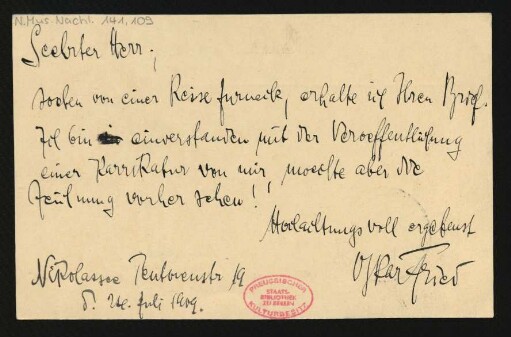 N. Mus. Nachl. 141, 109
Geehrter Herr,
soeben von einer Reise zurueck, erhalte ich Ihren Brief.
Ich bin einverstanden mit der Veroeffentlichung
einer Karrikatur von mir, moechte aber die
Zeichnung vorher sehen!
Hochachtungsvoll ergebenst
Oskar Fried
Nikolassee Teutonenstr 19
d. 24. Juli 1909.
PREUSSISCHER
STAATS-
BIBLIOTHEK
ZU BERLIN
KULTURBESITZ